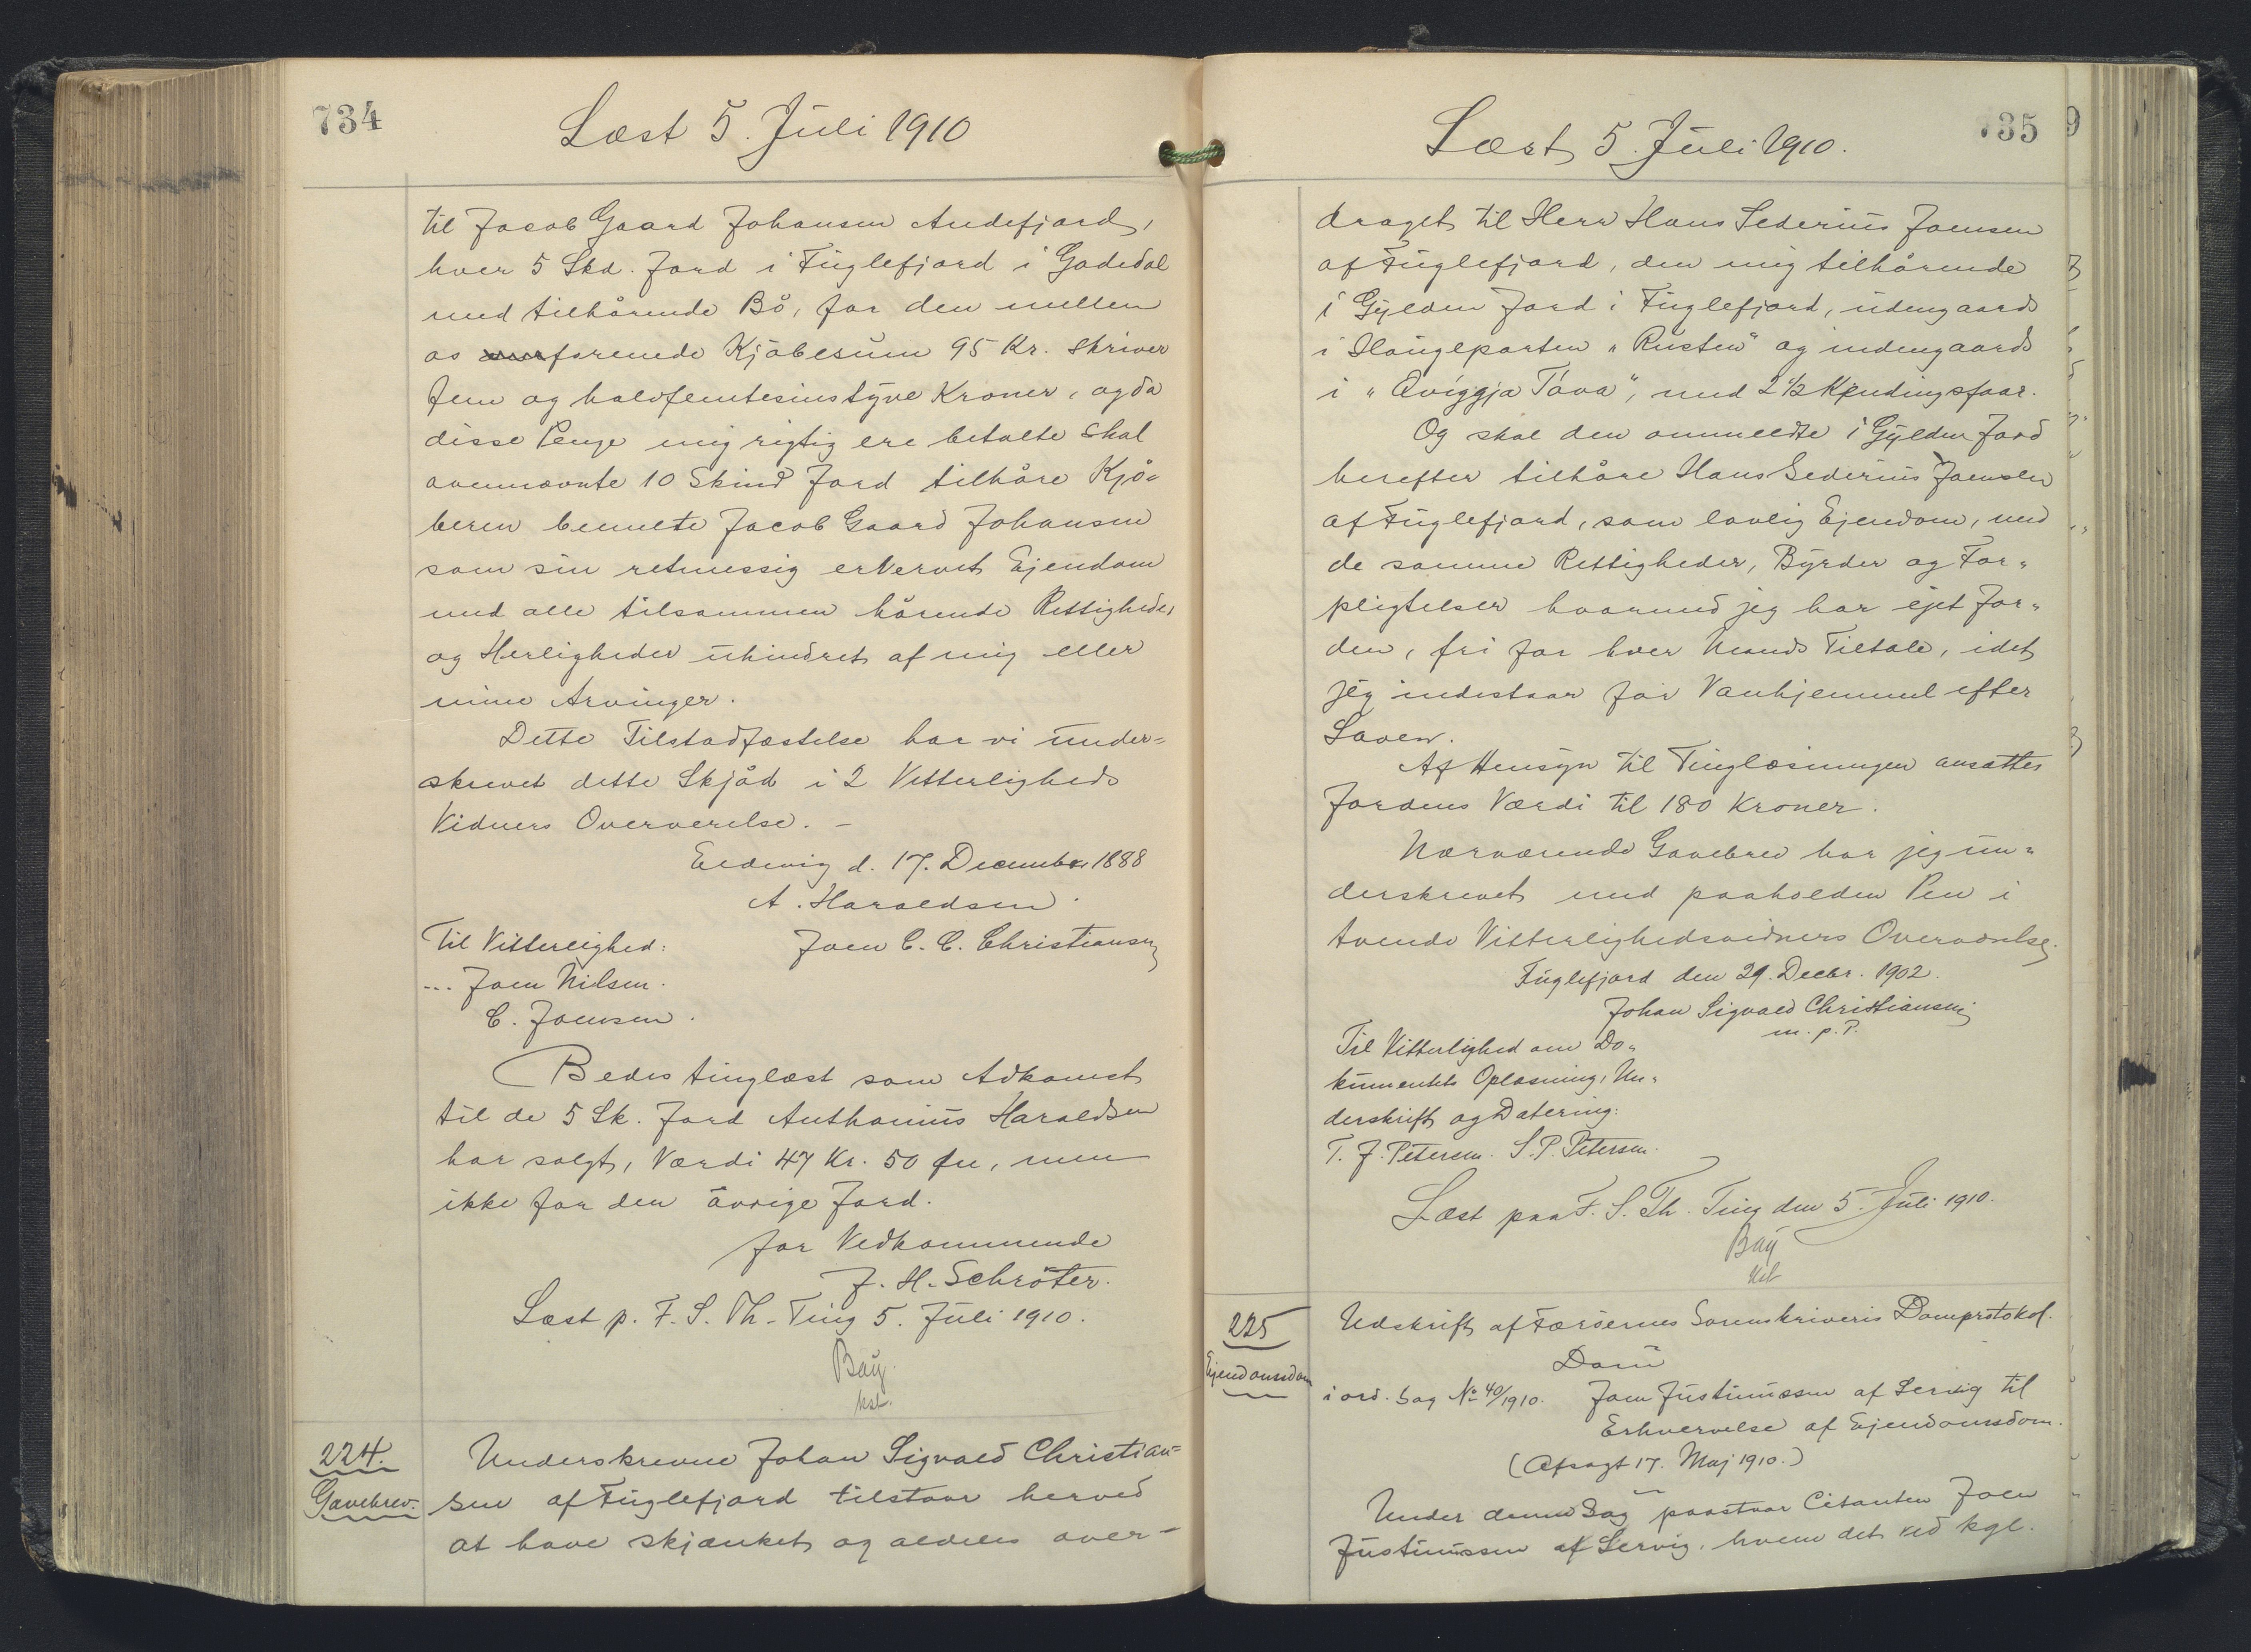 734
Læst 5. Juli 1910
til Jacob Gaard Johansen Andefjord,
hver 5 Skd. Jord i Fuglefjord i Gadedal
med tilhårende Bö, for den mellem
os forenede Kjöbesum 95 Kr. skriver
fem og halvfemtesinstyve Kroner, og da
disse Penge mig rigtig ere betalte skal
ovennævnte 10 Skind Jord tilhöre Kjö=
beren bemelte Jacob Gaard Johansen
som sin retmessig ervervet Ejendom
med alle tilsammen hörende Rettigheder
og Herligheder uhindret af mig eller
mine Arvinger.
Dette Tilstadfæstelse har vi under=
skrevet dette Skjöd i 2 Vitterligheds
Vidners Oververelse. –
Eldevig d. 17. December 1888
A. Haraldsen.
Til Vitterlighed: Joen C. C. Christiansen
... Joen Nilsen.
C. Joensen.
Bedes tinglæst som Adkomst
til de 5 Sk. Jord Anthonius Haraldsen
har solgt, Værdi 47 Kr. 50 Øre, men
ikke for den övrige Jord.
for Vedkommende
J. H. Schröter.
Læst p. F. S. Th. Ting 5. Juli 1910.
Bay.
kst.
224.
Gavebrev.
Underskrevne Johan Sigvald Christian=
sen af Fuglefjord tilstaar herved
at have skjænket og aldeles over=
735
9
Læst 5. Juli 1910.
draget til Herr Hans Sederius Joensen
af Fuglefjord, den mig tilhörende
1 Gylden Jord i Fuglefjord, udengaards
i Haugeparten "Rusten" og indengaards
i "Qviggja Tóva", med 2 1/2 Kendingsfaar.
Og skal den ommeldte 1 Gylden Jord
herefter tilhöre Hans Sederius Joensen
af Fuglefjord, som lovlig Ejendom, med
de samme Rettigheder, Byrder og For=
pligtelser hvormed jeg har ejet Jor=
den, fri for hver Mands Tiltale, idet
jeg indestaar for Vanhjemmel efter
Loven.
Af Hensyn til Tinglæsningen ansættes
Jordens Værdi til 180 Kroner.
Nærværende Gavebrev har jeg un=
derskrevet med paaholden Pen i
tvende Vitterlighedsvidners Overværelse.
Fuglefjord den 29. Decbr. 1902.
Johan Sigvald Christiansen
m. p. P.
Til Vitterlighed om Do=
kumentets Oplæsning, Un=
derskrift og Datering:
T. J. Petersen. S. P. Petersen.
Læst paa F. S. Th. Ting den 5. Juli 1910.
Bay
kst
225
Ejendomsdom
Udskrift af Færöernes Sorenskriveris Domprotokol.
Dom
i ord. Sag No 40/1910. Joen Justinussen af Lervig til
Erhvervelse af Ejendomsdom.
(Afsagt 17. Maj 1910.)
Under denne Sag paastaar Citanten Joen
Justinussen af Lervig, hvem det ved kgl.